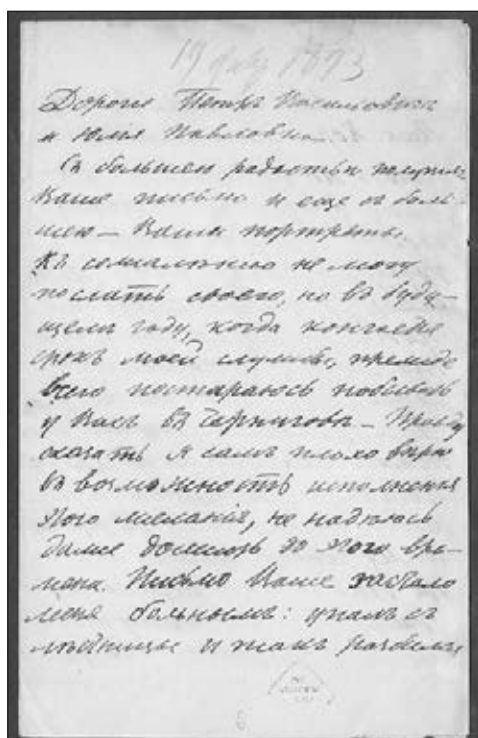 19 февр 1893
Дорогие Петръ Васильевичъ
и Юлія Павловна.
Съ большею радостью получилъ
Ваше письмо и еще съ боль-
шею — Ваши портреты.
Къ сожалѣнію не могу
послать своего, но въ буду-
щемъ году, когда кончится
срокъ моей службы, прежде
всего постараюсь побывать
у Васъ въ Черниговѣ — Правду
сказать я самъ плохо вѣрю
въ возможность исполненія
этого желанія, не надѣюсь
даже дожить до этого вре-
мени. Письмо Ваше застало
меня больнымъ: упалъ съ
лѣстницы и такъ разбился